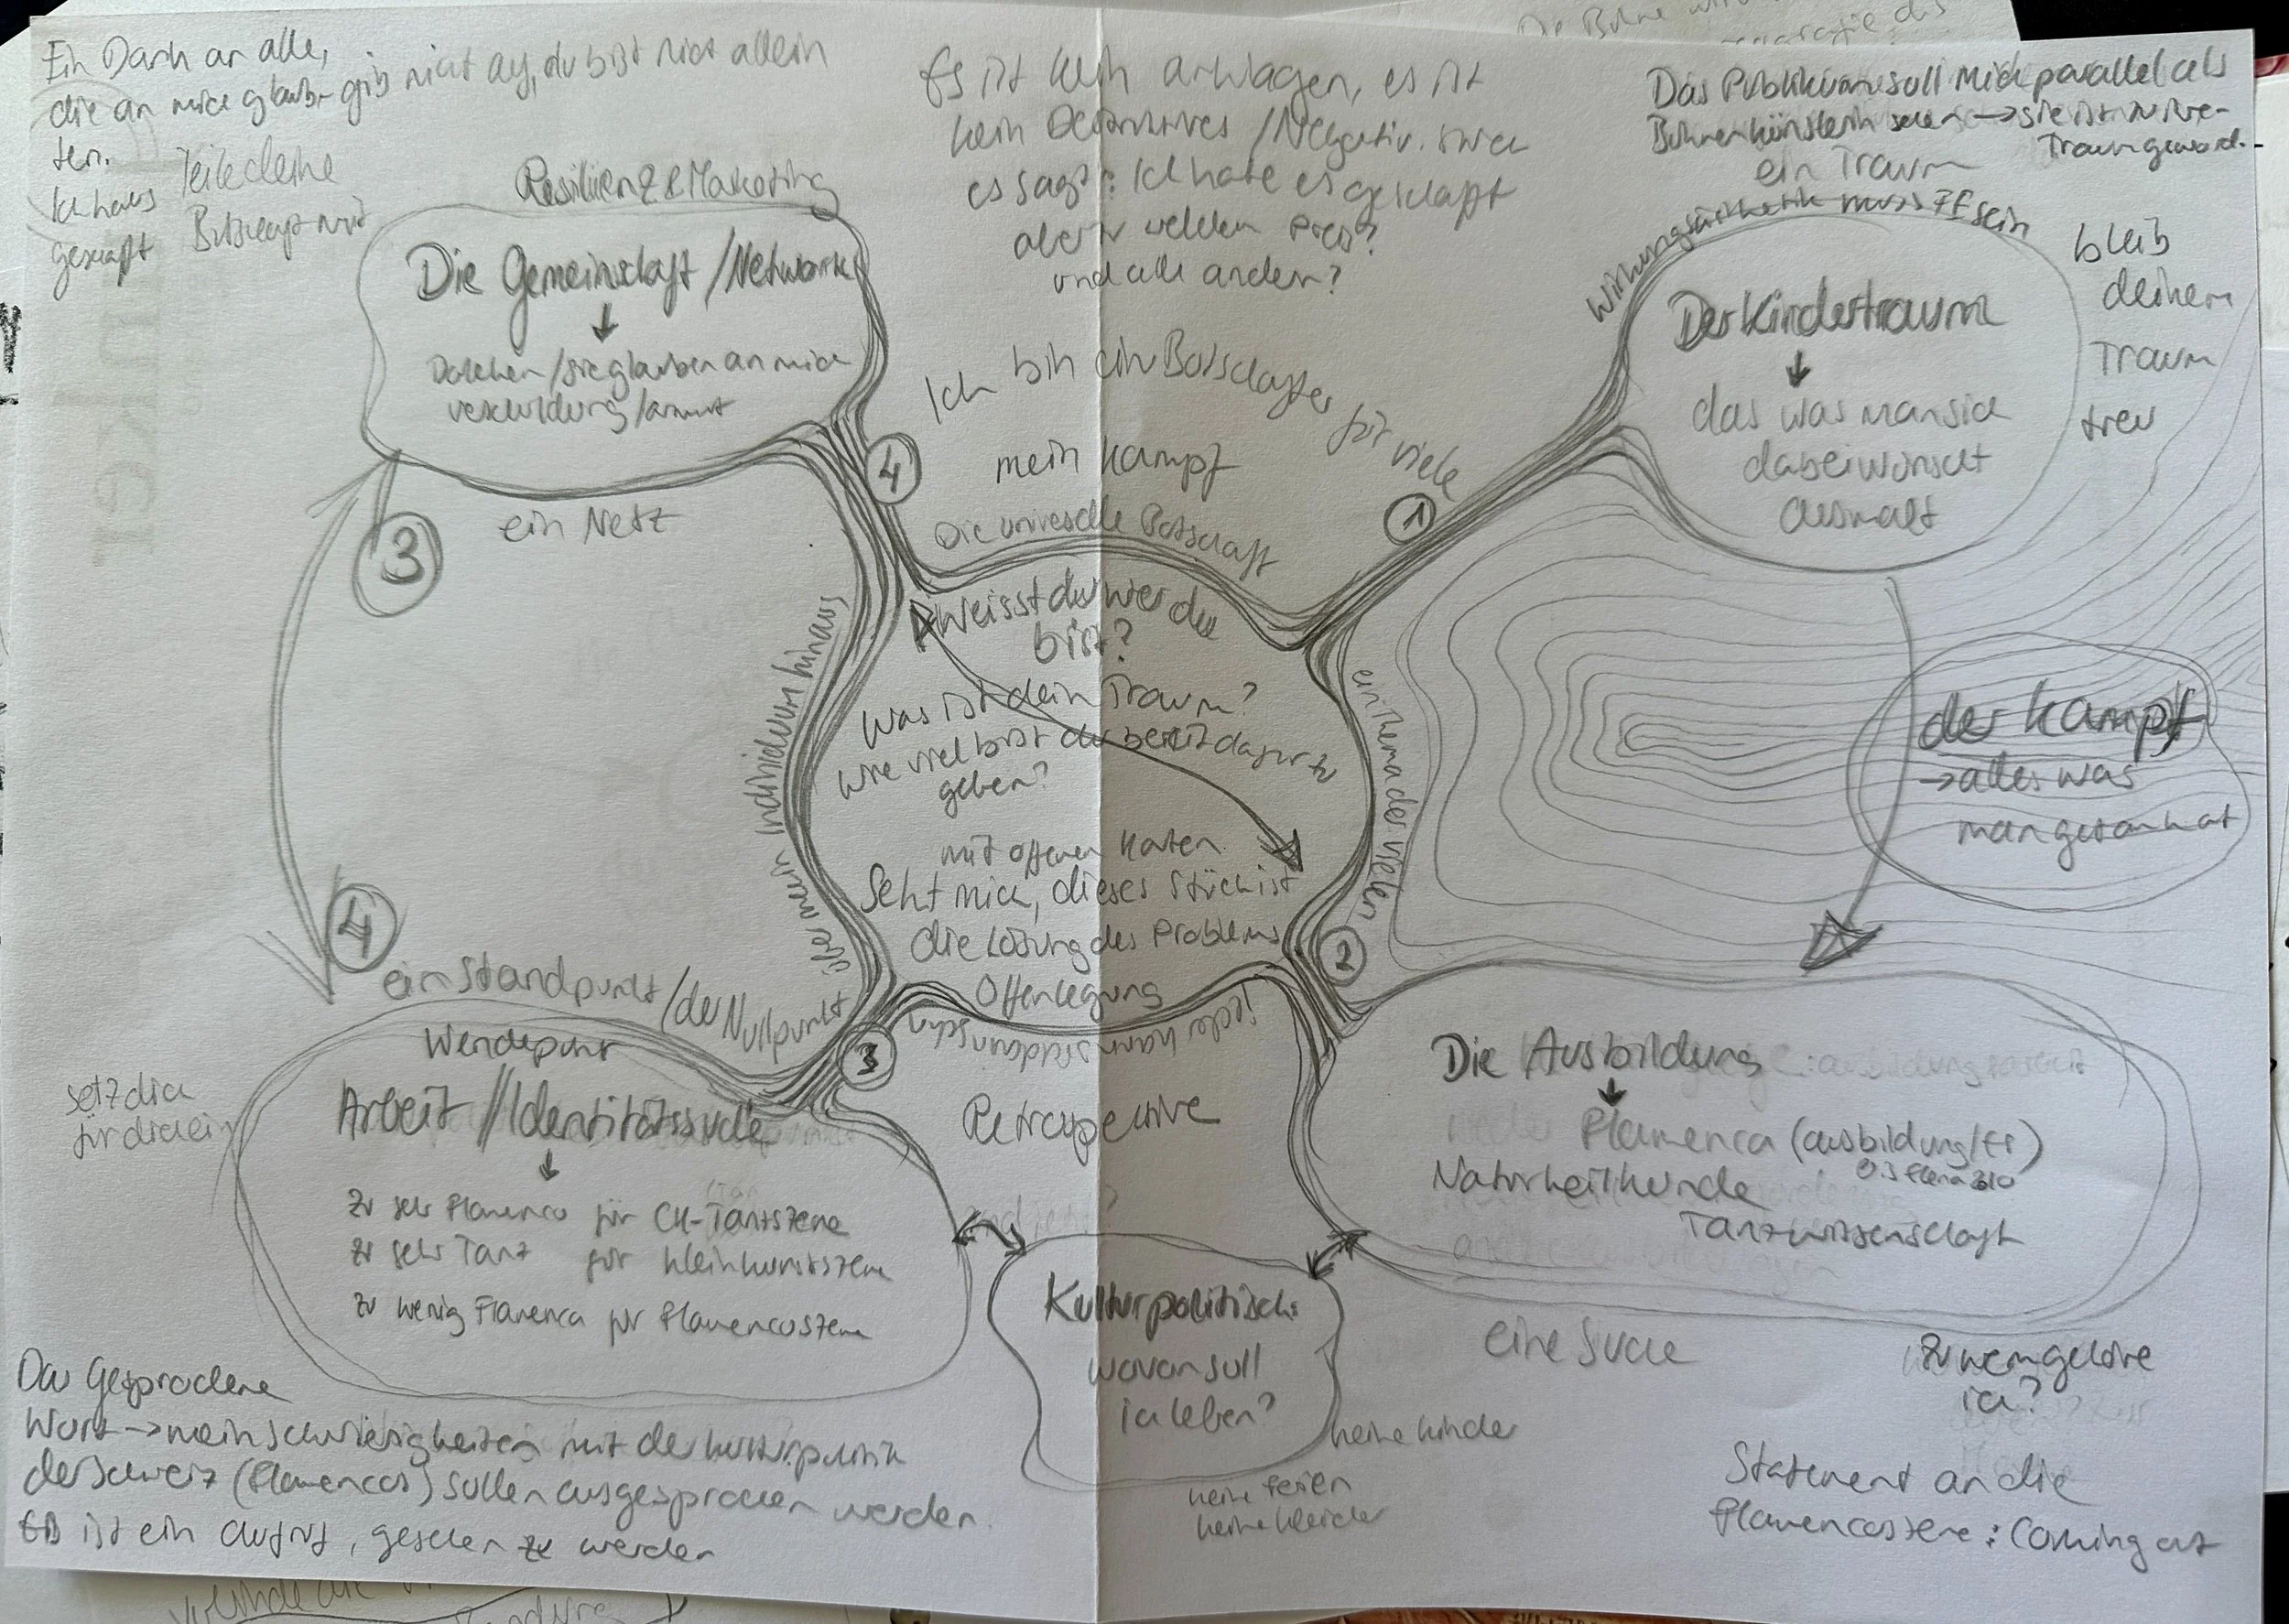 Ein Dank an alle,
die an mich glaub-
ten.
Ich habs
geschafft
gib nicht auf, du bist nicht allein
Teile deine
Botschaft mit
Resilienz & Marketing
Die Gemeinschaft / Network
Darlehen / sie glauben an mich
verschuldung / armut
ein Netz
3
4
Es ist kein anklagen, es ist
kein Destruktives / Negativ.
es sagt: Ich habe es geschafft
aber zu welchem Preis?
und alle andern?
Ich bin ein Botschafter für viele
mein Kampf
Die universelle Botschaft
4
1
Das Publikum soll mich parallel als
Bühnenkünstlerin sehen → sie ist zu ihre-
Traum geword.
ein Traum
Wirkungsästhetik muss FF sein
Der Kindertraum
das was man sich
dabei wünscht
ausmalt
bleib
deinem
Traum
treu
der Kampf
→ alles was
man getan hat
Weisst du wer du
bist?
Was ist dein Traum?
Wie viel bist du bereit dafür zu
geben?
mit offenen Karten
Seht mich, dieses Stück ist
die Lösung des Problems
Offenlegung
über mein Individuum hinaus
ein Thema der vielen
jeder kann sich darin sehn
2
3
ein Standpunkt / der Nullpunkt
Wendepunkt
Arbeit // Identitätssuche
zu sehr Flamenco für CH-Tanzszene
zu sehr Tanz für Kleinkunstszene
zu wenig Flamenco für Flamencoszene
setz dich
für dich ein
Retrospektive
Die Ausbildung
Flamenco (ausbildung/
Naturheilkunde
Tanzwissenschaft
Kulturpolitisch:
wovon soll
ich leben?
keine Kinder
keine Ferien
keine Kleider
eine Suche
Zu wem gehöre
ich?
Statement an die
Flamencoszene: Coming out
Das Gesprochene
Wort → mein schwierigkeiten mit der kulturpolitik
der Schweiz (Flamencos) sollen ausgesprochen werden
Es ist ein Aufruf, gesehen zu werden